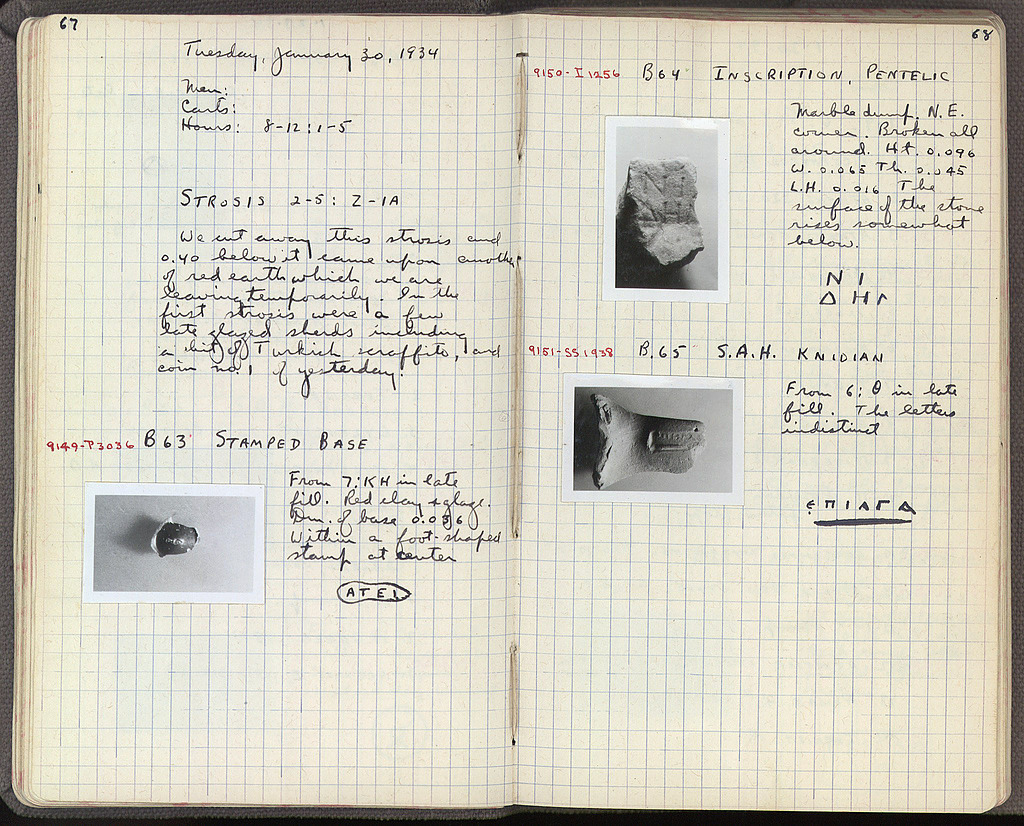 67
Tuesday, January 30, 1934
Men:
Carts:
Hours: 8-12 : 1-5
STROSIS 2-5 : Z-IA
We cut away this strosis and
0.40 below it came upon another
of red earth which we are
leaving temporarily. In the
first strosis were a few
late glazed sherds including
a bit of Turkish scraffito, and
coin no. 1 of yesterday.
9149-P3036 B63 STAMPED BASE
From 7:KH in late
fill. Red clay & glaze.
Dm. of base 0.036
Within a foot-shaped
stamp at center
ATEI
68
9150-I1256 B64 INSCRIPTION, PENTELIC
Marble dump. N.E.
corner. Broken all
around. Ht. 0.096
W. 0.065 Th. 0.045
L.H. 0.016 The
surface of the stone
rises somewhat
below.
Ν Ι
Δ Η Γ
9151-SS1938 B.65 S.A.H. KNIDIAN
From 6:Θ in late
fill. The letters
indistinct
ЄΠΙΑΓΑ